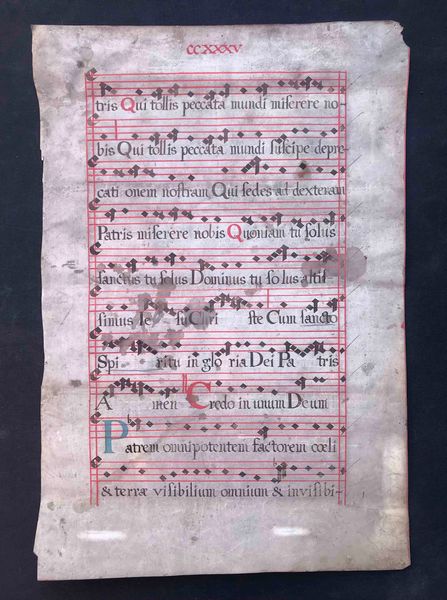 CCXXXV
tris Qui tollis peccata mundi miserere no-
bis Qui tollis peccata mundi suscipe depre
cati onem nostram Qui sedes ad dexteram
Patris miserere nobis Quoniam tu solus
sanctus tu solus Dominus tu so lus altis-
simus Ie su Chri ste Cum sancto
Spi ritu in glo ria Dei Pa tris
A men Credo in unum Deum
Patrem omnipotentem factorem cœli
& terræ visibilium omnium & invisibi-